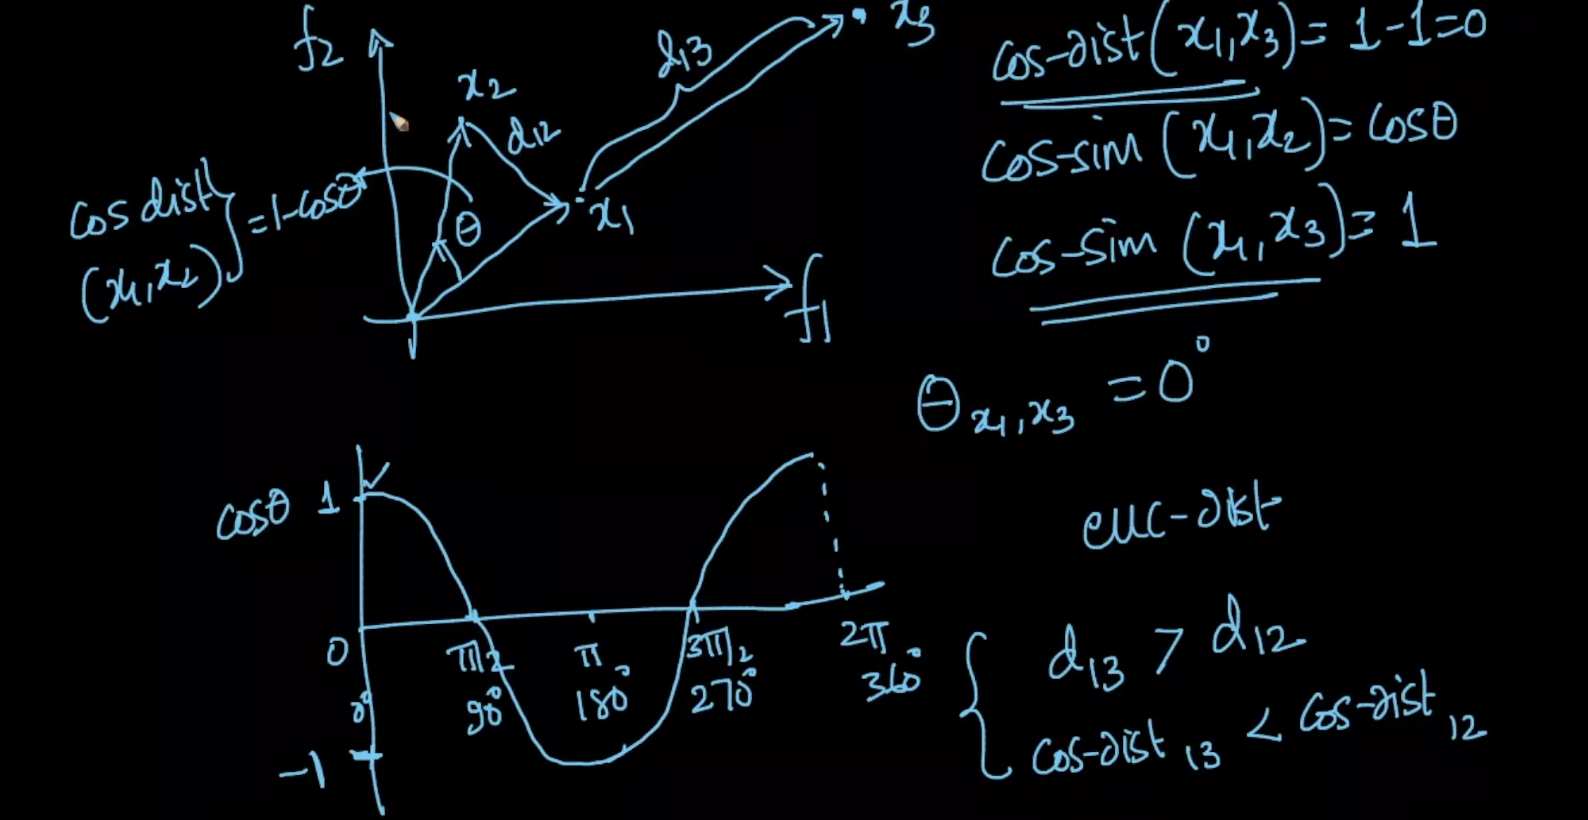 f2
x2
d12
d13
x3
x1
θ
f1
cos dist
(x1,x2) } = 1-cosθ
cos-dist(x1,x3) = 1-1=0
cos-sim (x1,x2) = cosθ
cos-sim (x1,x3) = 1
θx1,x3 = 0°
cosθ 1
0 π/2 π 3π/2 2π
0° 90° 180° 270° 360°
-1
euc-dist
{ d13 > d12
cos-dist13 < cos-dist12